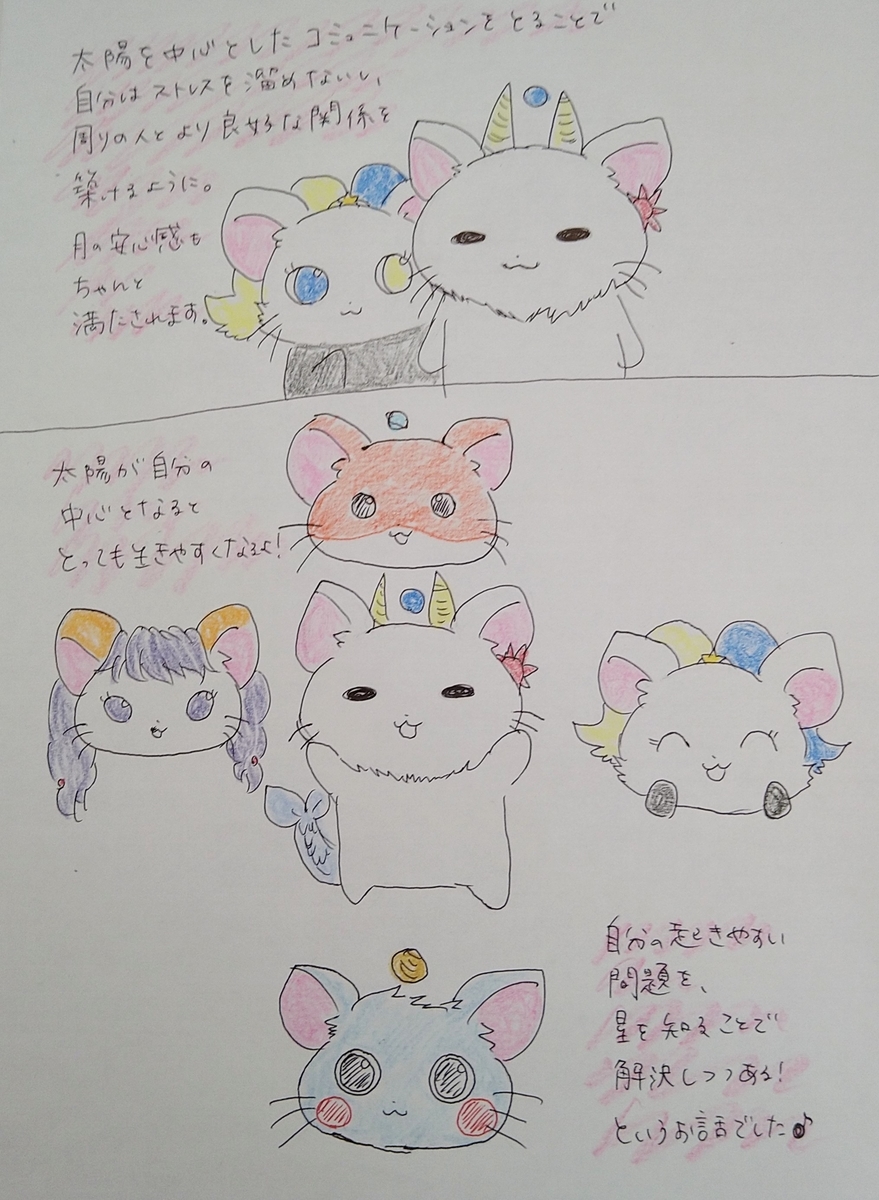 太陽を中心としたコミュニケーションをとることで
自分はストレスを溜めないし、
周りの人とより良好な関係を
築けるように。
月の安心感も
ちゃんと
満たされます。
太陽が自分の
中心となると
とっても生きやすくなるよ!
自分の起きやすい
問題を、
星を知ることで
解決しつつある!
というお話でした♪